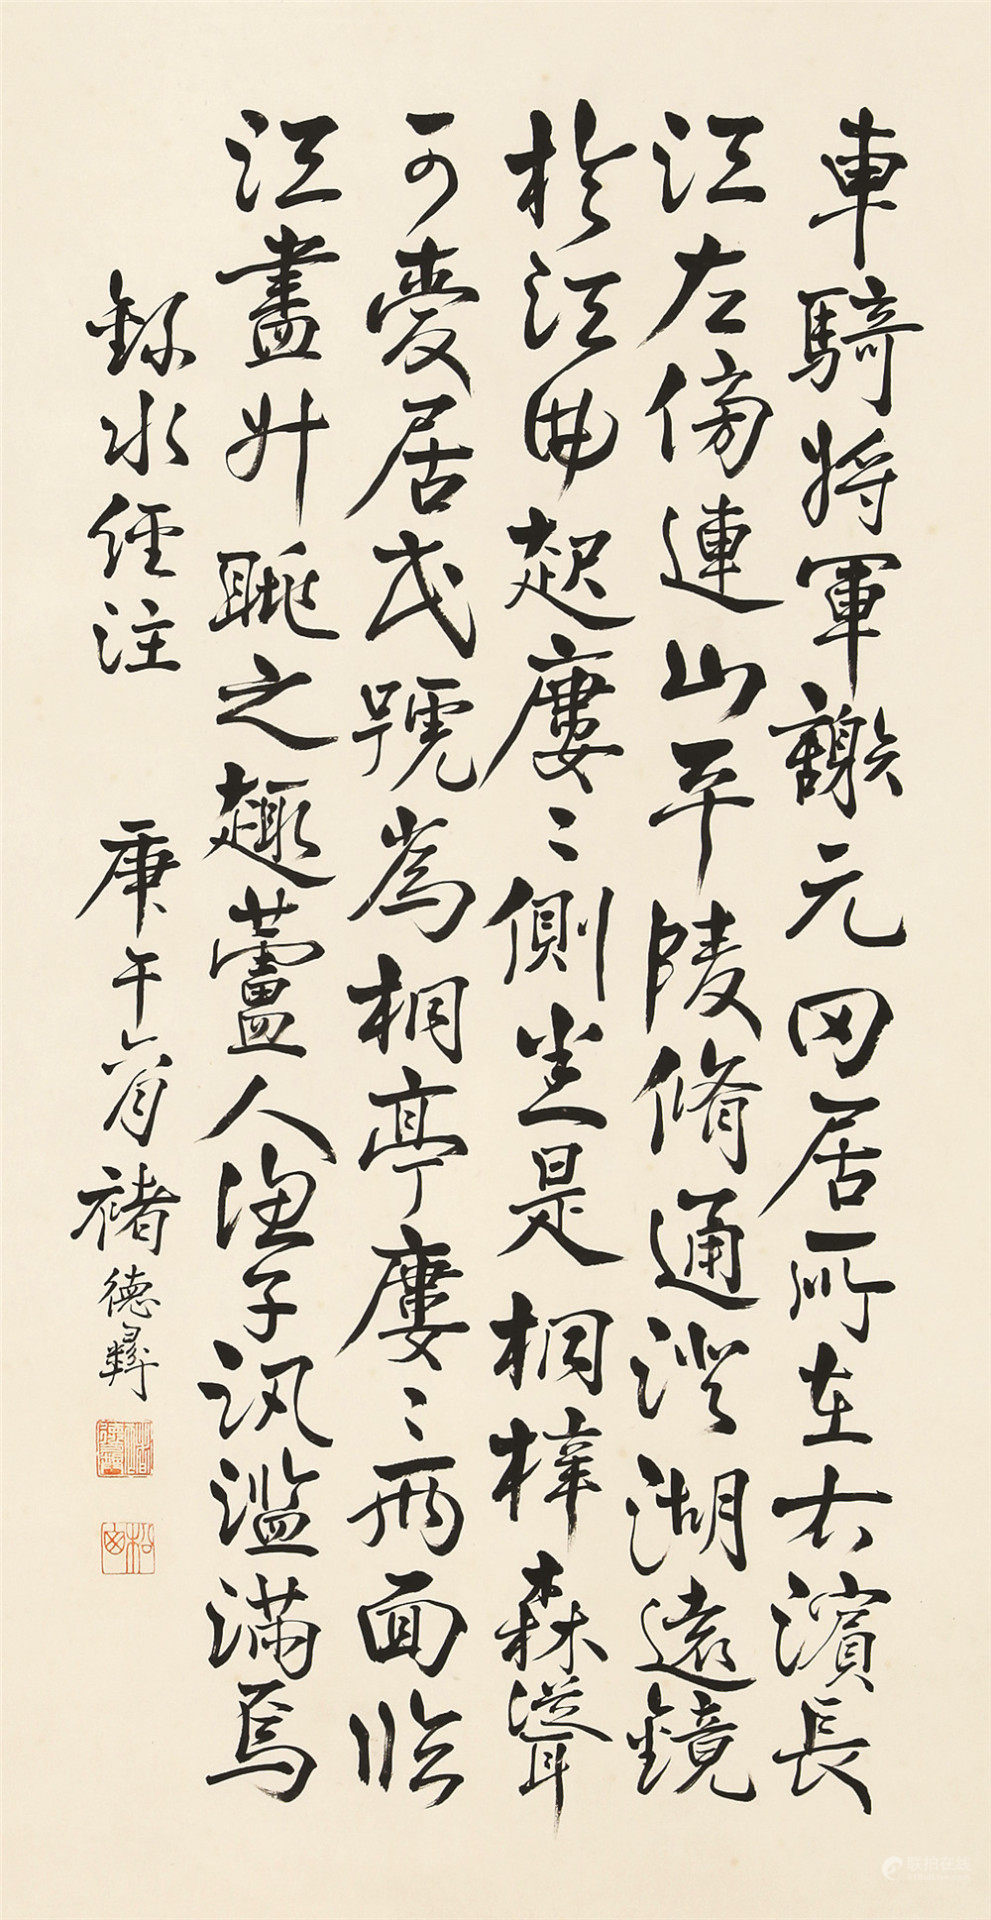 車騎將軍謝元田居所在右濱長
江左傍連山平陵脩通澄湖遠鏡
於江曲起廔〻側坐是桐梓森聳
可愛居民號為桐亭廔〻兩面臨
江盡升眺之趣蘆人漁子汎濫滿焉
錄水經注 庚午六月 褚德彝